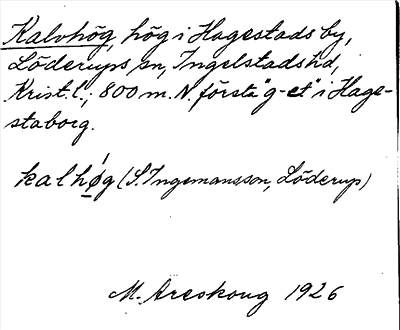 Kalvhög, hög i Hagestads by,
Löderups sn, Ingelstads hd,
Krist. l.; 800 m. N. första "g-et" i Hage-
staborg.
kalhǿg (S. Ingemansson, Löderup)
M. Areskoug 1926